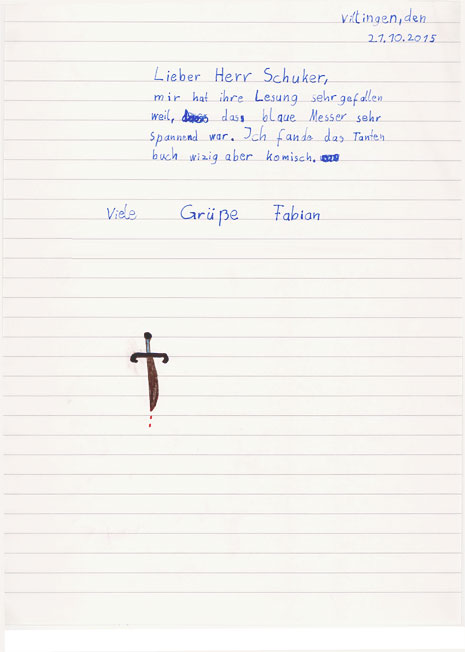 Villingen, den
21.10.2015
Lieber Herr Schuker,
mir hat ihre Lesung sehr gefallen
weil, das blaue Messer sehr
spannend war. Ich fande das Tanten
buch wizig aber komisch.
Viele Grüße Fabian